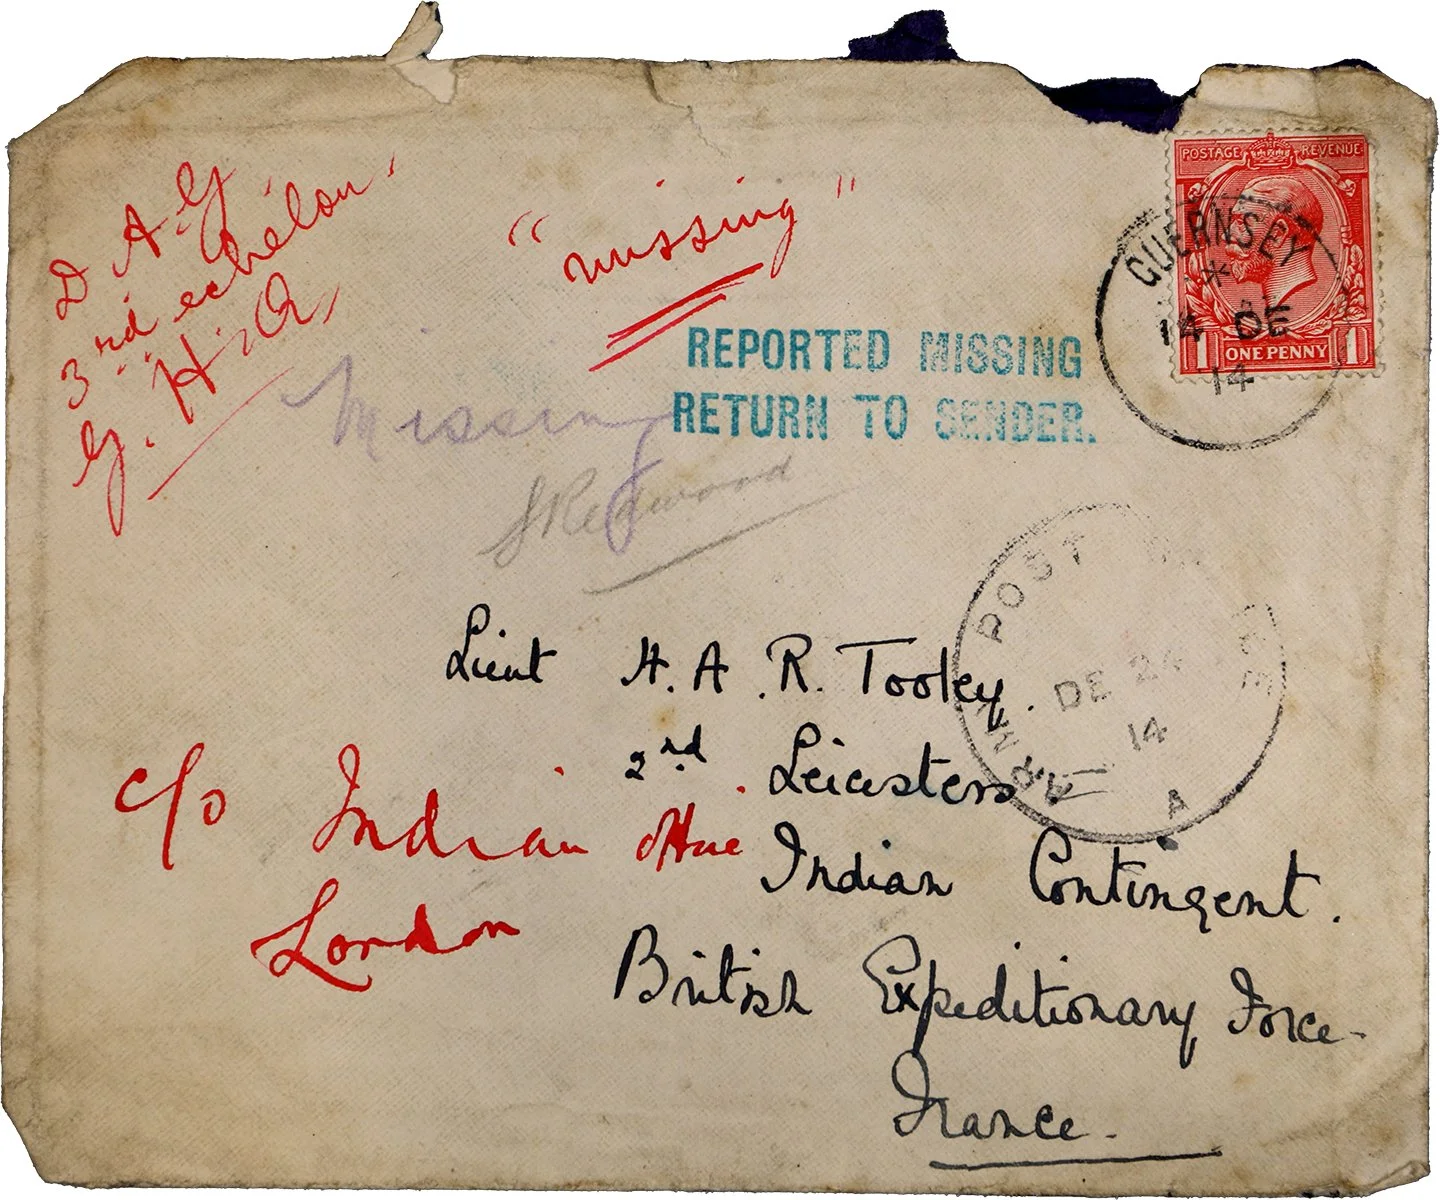 D A G
3rd echelon
G. H. Q.
"missing"
POSTAGE REVENUE
1 ONE PENNY 1
GUERNSEY
14 DE
14
REPORTED MISSING
RETURN TO SENDER.
Missing
Lieut H. A. R. Tooley.
2nd Leicesters
Indian Contingent.
British Expeditionary Force
France.
c/o Indian
London
ARMY POST
DE 24
14
A